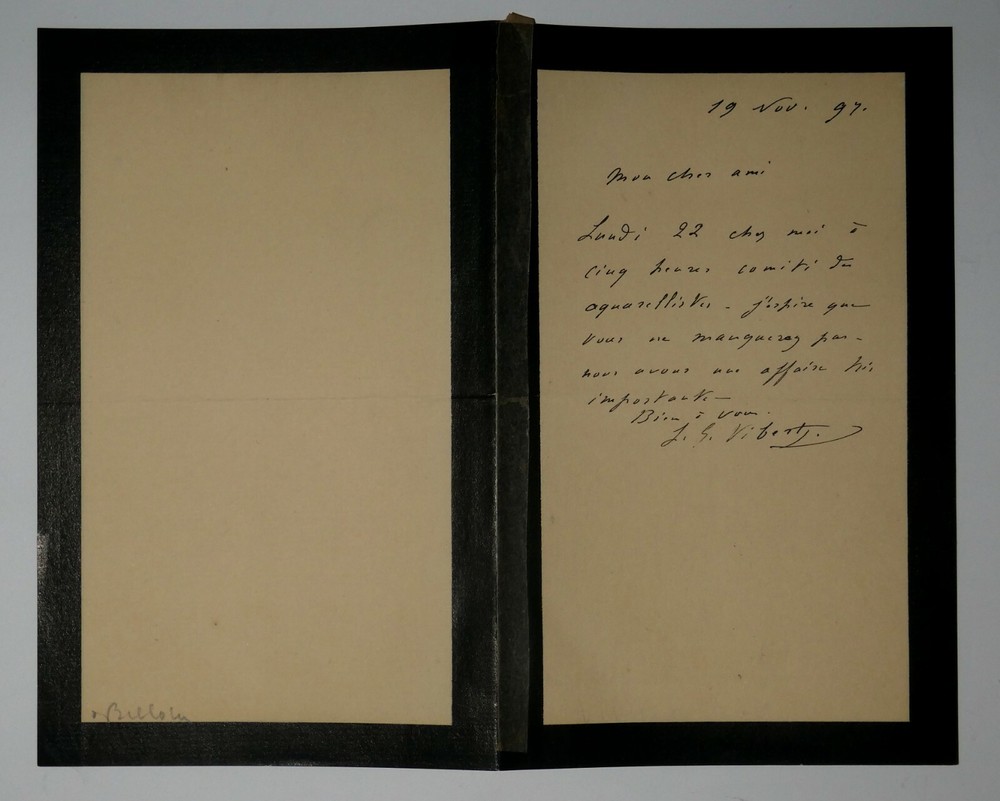 19 Nov. 97.
Mon cher ami
Lundi 22 chez moi à
cinq heures comité des
aquarellistes - j'espère que
vous ne manquerez pas -
nous avons une affaire très
importante -
Bien à vous.
J. G. Vibert.